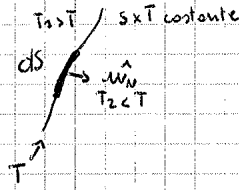 T₁>T
S x T costante
dS
û_N
T₂<T
T